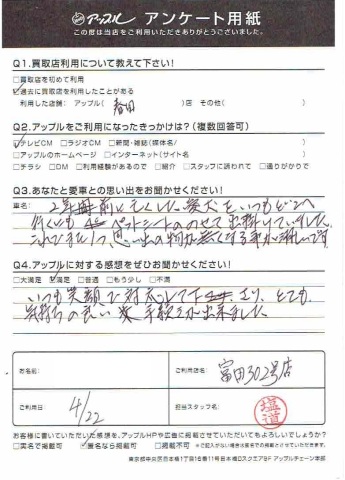 アップル アンケート用紙
この度は当店をご利用いただきありがとうございました。
Q1.買取店利用について教えて下さい!
□買取店を初めて利用
☑過去に買取店を利用したことがある
利用した店舗: アップル( 春田 )店 その他( )
Q2.アップルをご利用になったきっかけは?(複数回答可)
☑テレビCM □ラジオCM □新聞・雑誌(媒体名/ )
□アップルのホームページ □インターネット(サイト名 )
□チラシ □DM □利用経験があるので □紹介 □スタッフに誘われて □通りがかりで
Q3.あなたと愛車との思い出をお聞かせください!
車名:
2年前に亡くした愛犬をいつもどこへ
行くにもペットシートにのせて出掛けていました。
これでまた1つ、思い出の物が無くなる事が淋しいです
Q4.アップルに対する感想をぜひお聞かせください!
□大満足 ☑満足 □普通 □もう少し □不満
いつも笑顔で対応して下さり、とても
気持ちの良い手続きが出来ました。
お名前:
ご利用店名:
富田302号店
ご利用日:
4/22
担当スタッフ名:
塩道
お客様に書いていただいた感想を、アップルHPや広告に掲載させていただいてもよろしいでしょうか?
□実名で掲載可 ☑匿名なら掲載可 □掲載不可
東京都中央区日本橋1丁目16番11号日本橋DスクエアBF アップルチェーン本部